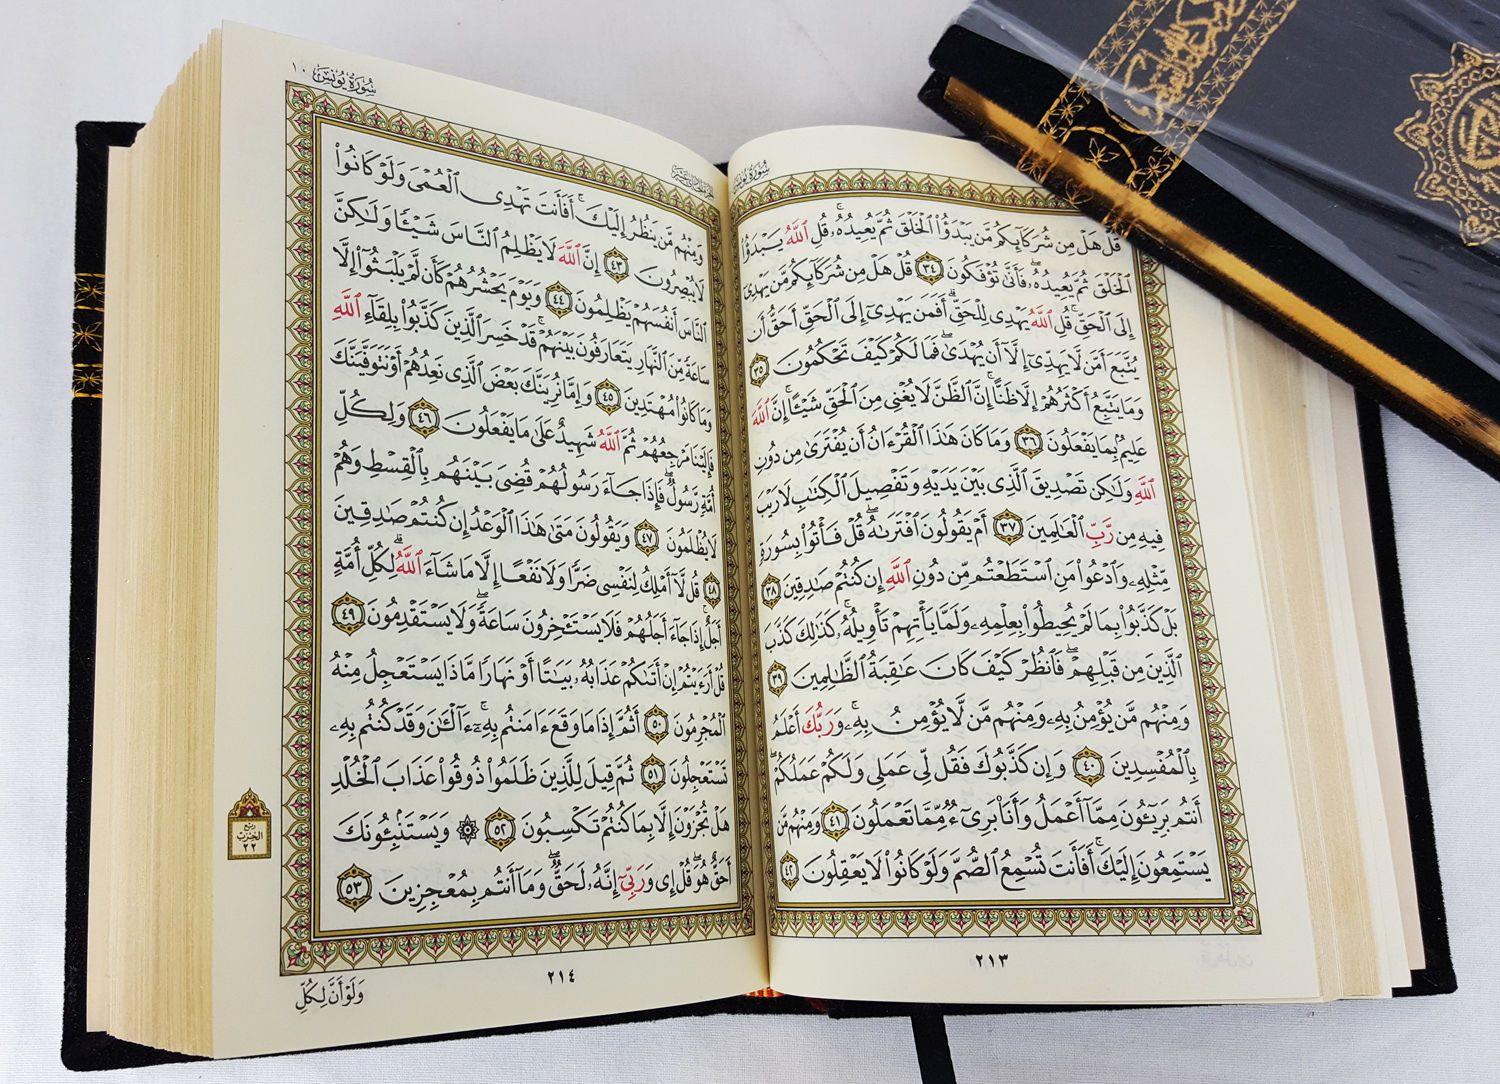 سُورَةُ يُونُسَ
قُلْ هَلْ مِن شُرَكَآئِكُم مَّن يَبْدَؤُا۟ ٱلْخَلْقَ ثُمَّ يُعِيدُهُۥ ۚ قُلِ ٱللَّهُ يَبْدَؤُا۟
ٱلْخَلْقَ ثُمَّ يُعِيدُهُۥ ۖ فَأَنَّىٰ تُؤْفَكُونَ ٣٤ قُلْ هَلْ مِن شُرَكَآئِكُم مَّن يَهْدِىٓ
إِلَى ٱلْحَقِّ ۚ قُلِ ٱللَّهُ يَهْدِى لِلْحَقِّ ۗ أَفَمَن يَهْدِىٓ إِلَى ٱلْحَقِّ أَحَقُّ أَن
يُتَّبَعَ أَمَّن لَّا يَهِدِّىٓ إِلَّآ أَن يُهْدَىٰ ۖ فَمَا لَكُمْ كَيْفَ تَحْكُمُونَ ٣٥
وَمَا يَتَّبِعُ أَكْثَرُهُمْ إِلَّا ظَنًّا ۚ إِنَّ ٱلظَّنَّ لَا يُغْنِى مِنَ ٱلْحَقِّ شَيْـًٔا ۚ إِنَّ ٱللَّهَ
عَلِيمٌۢ بِمَا يَفْعَلُونَ ٣٦ وَمَا كَانَ هَٰذَا ٱلْقُرْءَانُ أَن يُفْتَرَىٰ مِن دُونِ
ٱللَّهِ وَلَٰكِن تَصْدِيقَ ٱلَّذِى بَيْنَ يَدَيْهِ وَتَفْصِيلَ ٱلْكِتَٰبِ لَا رَيْبَ
فِيهِ مِن رَّبِّ ٱلْعَٰلَمِينَ ٣٧ أَمْ يَقُولُونَ ٱفْتَرَىٰهُ ۖ قُلْ فَأْتُوا۟ بِسُورَةٍ
مِّثْلِهِۦ وَٱدْعُوا۟ مَنِ ٱسْتَطَعْتُم مِّن دُونِ ٱللَّهِ إِن كُنتُمْ صَٰدِقِينَ ٣٨
بَلْ كَذَّبُوا۟ بِمَا لَمْ يُحِيطُوا۟ بِعِلْمِهِۦ وَلَمَّا يَأْتِهِمْ تَأْوِيلُهُۥ ۚ كَذَٰلِكَ كَذَّبَ
ٱلَّذِينَ مِن قَبْلِهِمْ ۖ فَٱنظُرْ كَيْفَ كَانَ عَٰقِبَةُ ٱلظَّٰلِمِينَ ٣٩
وَمِنْهُم مَّن يُؤْمِنُ بِهِۦ وَمِنْهُم مَّن لَّا يُؤْمِنُ بِهِۦ ۚ وَرَبُّكَ أَعْلَمُ
بِٱلْمُفْسِدِينَ ٤٠ وَإِن كَذَّبُوكَ فَقُل لِّى عَمَلِى وَلَكُمْ عَمَلُكُمْ ۖ
أَنتُم بَرِيٓـُٔونَ مِمَّآ أَعْمَلُ وَأَنَا۠ بَرِىٓءٌ مِّمَّا تَعْمَلُونَ ٤١ وَمِنْهُم مَّن
يَسْتَمِعُونَ إِلَيْكَ ۚ أَفَأَنتَ تُسْمِعُ ٱلصُّمَّ وَلَوْ كَانُوا۟ لَا يَعْقِلُونَ ٤٢
٢١٣
سُورَةُ يُونُسَ ١٠
وَمِنْهُم مَّن يَنظُرُ إِلَيْكَ ۚ أَفَأَنتَ تَهْدِى ٱلْعُمْىَ وَلَوْ كَانُوا۟
لَا يُبْصِرُونَ ٤٣ إِنَّ ٱللَّهَ لَا يَظْلِمُ ٱلنَّاسَ شَيْـًٔا وَلَٰكِنَّ
ٱلنَّاسَ أَنفُسَهُمْ يَظْلِمُونَ ٤٤ وَيَوْمَ يَحْشُرُهُمْ كَأَن لَّمْ يَلْبَثُوٓا۟ إِلَّا
سَاعَةً مِّنَ ٱلنَّهَارِ يَتَعَارَفُونَ بَيْنَهُمْ ۚ قَدْ خَسِرَ ٱلَّذِينَ كَذَّبُوا۟ بِلِقَآءِ ٱللَّهِ
وَمَا كَانُوا۟ مُهْتَدِينَ ٤٥ وَإِمَّا نُرِيَنَّكَ بَعْضَ ٱلَّذِى نَعِدُهُمْ أَوْ نَتَوَفَّيَنَّكَ
فَإِلَيْنَا مَرْجِعُهُمْ ثُمَّ ٱللَّهُ شَهِيدٌ عَلَىٰ مَا يَفْعَلُونَ ٤٦ وَلِكُلِّ
أُمَّةٍ رَّسُولٌ ۖ فَإِذَا جَآءَ رَسُولُهُمْ قُضِىَ بَيْنَهُم بِٱلْقِسْطِ وَهُمْ
لَا يُظْلَمُونَ ٤٧ وَيَقُولُونَ مَتَىٰ هَٰذَا ٱلْوَعْدُ إِن كُنتُمْ صَٰدِقِينَ
٤٨ قُل لَّآ أَمْلِكُ لِنَفْسِى ضَرًّا وَلَا نَفْعًا إِلَّا مَا شَآءَ ٱللَّهُ ۗ لِكُلِّ أُمَّةٍ
أَجَلٌ ۚ إِذَا جَآءَ أَجَلُهُمْ فَلَا يَسْتَـْٔخِرُونَ سَاعَةً ۖ وَلَا يَسْتَقْدِمُونَ ٤٩
قُلْ أَرَءَيْتُمْ إِنْ أَتَىٰكُمْ عَذَابُهُۥ بَيَٰتًا أَوْ نَهَارًا مَّاذَا يَسْتَعْجِلُ مِنْهُ
ٱلْمُجْرِمُونَ ٥٠ أَثُمَّ إِذَا مَا وَقَعَ ءَامَنتُم بِهِۦٓ ۚ ءَآلْـَٰٔنَ وَقَدْ كُنتُم بِهِۦ
تَسْتَعْجِلُونَ ٥١ ثُمَّ قِيلَ لِلَّذِينَ ظَلَمُوا۟ ذُوقُوا۟ عَذَابَ ٱلْخُلْدِ
هَلْ تُجْزَوْنَ إِلَّا بِمَا كُنتُمْ تَكْسِبُونَ ٥٢ ۞ وَيَسْتَنۢبِـُٔونَكَ
أَحَقٌّ هُوَ ۖ قُلْ إِى وَرَبِّىٓ إِنَّهُۥ لَحَقٌّ ۖ وَمَآ أَنتُم بِمُعْجِزِينَ ٥٣
ربع
الحزب
٢٢
٢١٤
وَلَوْ أَنَّ لِكُلِّ